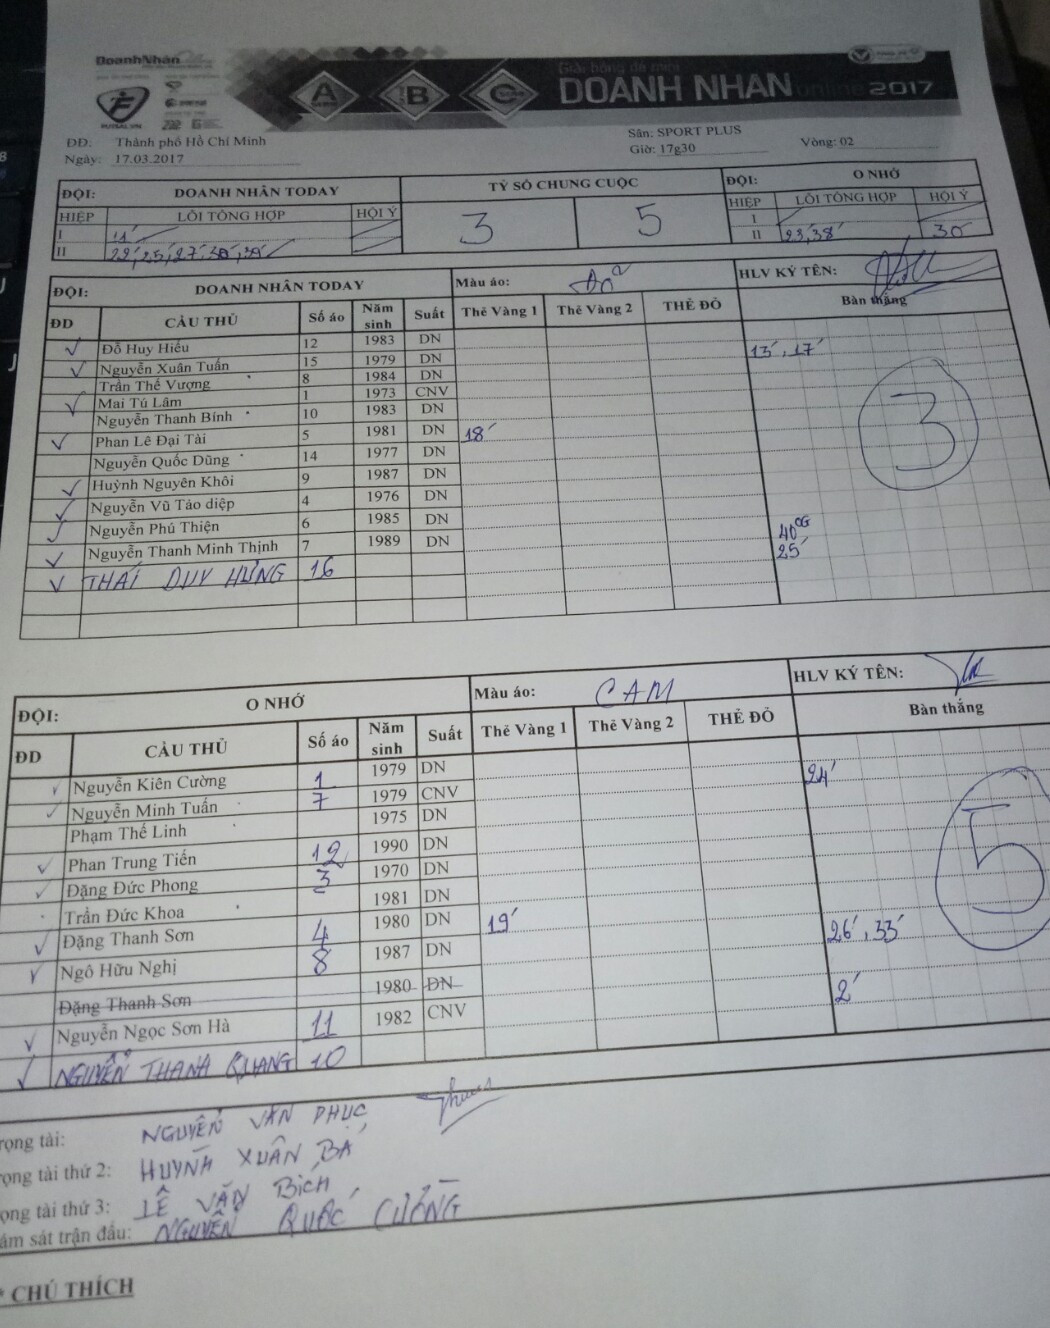 DoanhNhân
A B C
Giải bóng đá mini
DOANH NHAN online 2017
FUTSAL.VN
ĐĐ: Thành phố Hồ Chí Minh
Sân: SPORT PLUS
Vòng: 02
Ngày: 17.03.2017
Giờ: 17g30
ĐỘI: DOANH NHÂN TODAY
TỶ SỐ CHUNG CUỘC
ĐỘI: O NHỚ
HIỆP LỖI TỔNG HỢP HỘI Ý
3 5
HIỆP LỖI TỔNG HỢP HỘI Ý
I
I
II 22', 25', 27'
II 23', 38' 30
ĐỘI: DOANH NHÂN TODAY Màu áo: Đỏ HLV KÝ TÊN:
ĐD CẦU THỦ Số áo Năm sinh Suất Thẻ Vàng 1 Thẻ Vàng 2 THẺ ĐỎ Bàn thắng
Đỗ Huy Hiếu 12 1983 DN
Nguyễn Xuân Tuấn 15 1979 DN 13', 17'
Trần Thế Vượng 8 1984 DN
Mai Tú Lâm 1 1973 CNV
Nguyễn Thanh Bính 10 1983 DN
Phan Lê Đại Tài 5 1981 DN 18'
Nguyễn Quốc Dũng 14 1977 DN
Huỳnh Nguyên Khôi 9 1987 DN
Nguyễn Vũ Tảo diệp 4 1976 DN
Nguyễn Phú Thiện 6 1985 DN
Nguyễn Thanh Minh Thịnh 7 1989 DN 40 OG
THÁI DUY HƯNG 16 25'
3
ĐỘI: O NHỚ Màu áo: CAM HLV KÝ TÊN:
ĐD CẦU THỦ Số áo Năm sinh Suất Thẻ Vàng 1 Thẻ Vàng 2 THẺ ĐỎ Bàn thắng
Nguyễn Kiên Cường 1 1979 DN 24'
Nguyễn Minh Tuấn 7 1979 CNV
Phạm Thế Linh 1975 DN
Phan Trung Tiến 12 1990 DN
Đặng Đức Phong 3 1970 DN
Trần Đức Khoa 1981 DN
Đặng Thanh Sơn 4 1980 DN 19' 26', 33'
Ngô Hữu Nghị 8 1987 DN
Đặng Thanh Sơn 1980 DN 2'
Nguyễn Ngọc Sơn Hà 11 1982 CNV
NGUYỄN THANH QUANG 10
5
rọng tài: NGUYỄN VĂN PHỤC
rọng tài thứ 2: HUỲNH XUÂN BÁ
ọng tài thứ 3: LÊ VĂN BÍCH
ám sát trận đấu: NGUYỄN QUỐC CƯỜNG
* CHÚ THÍCH